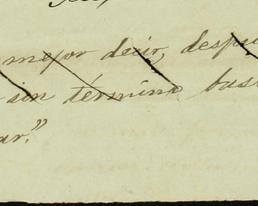 mejor decir, despu
sin término bas
ar."